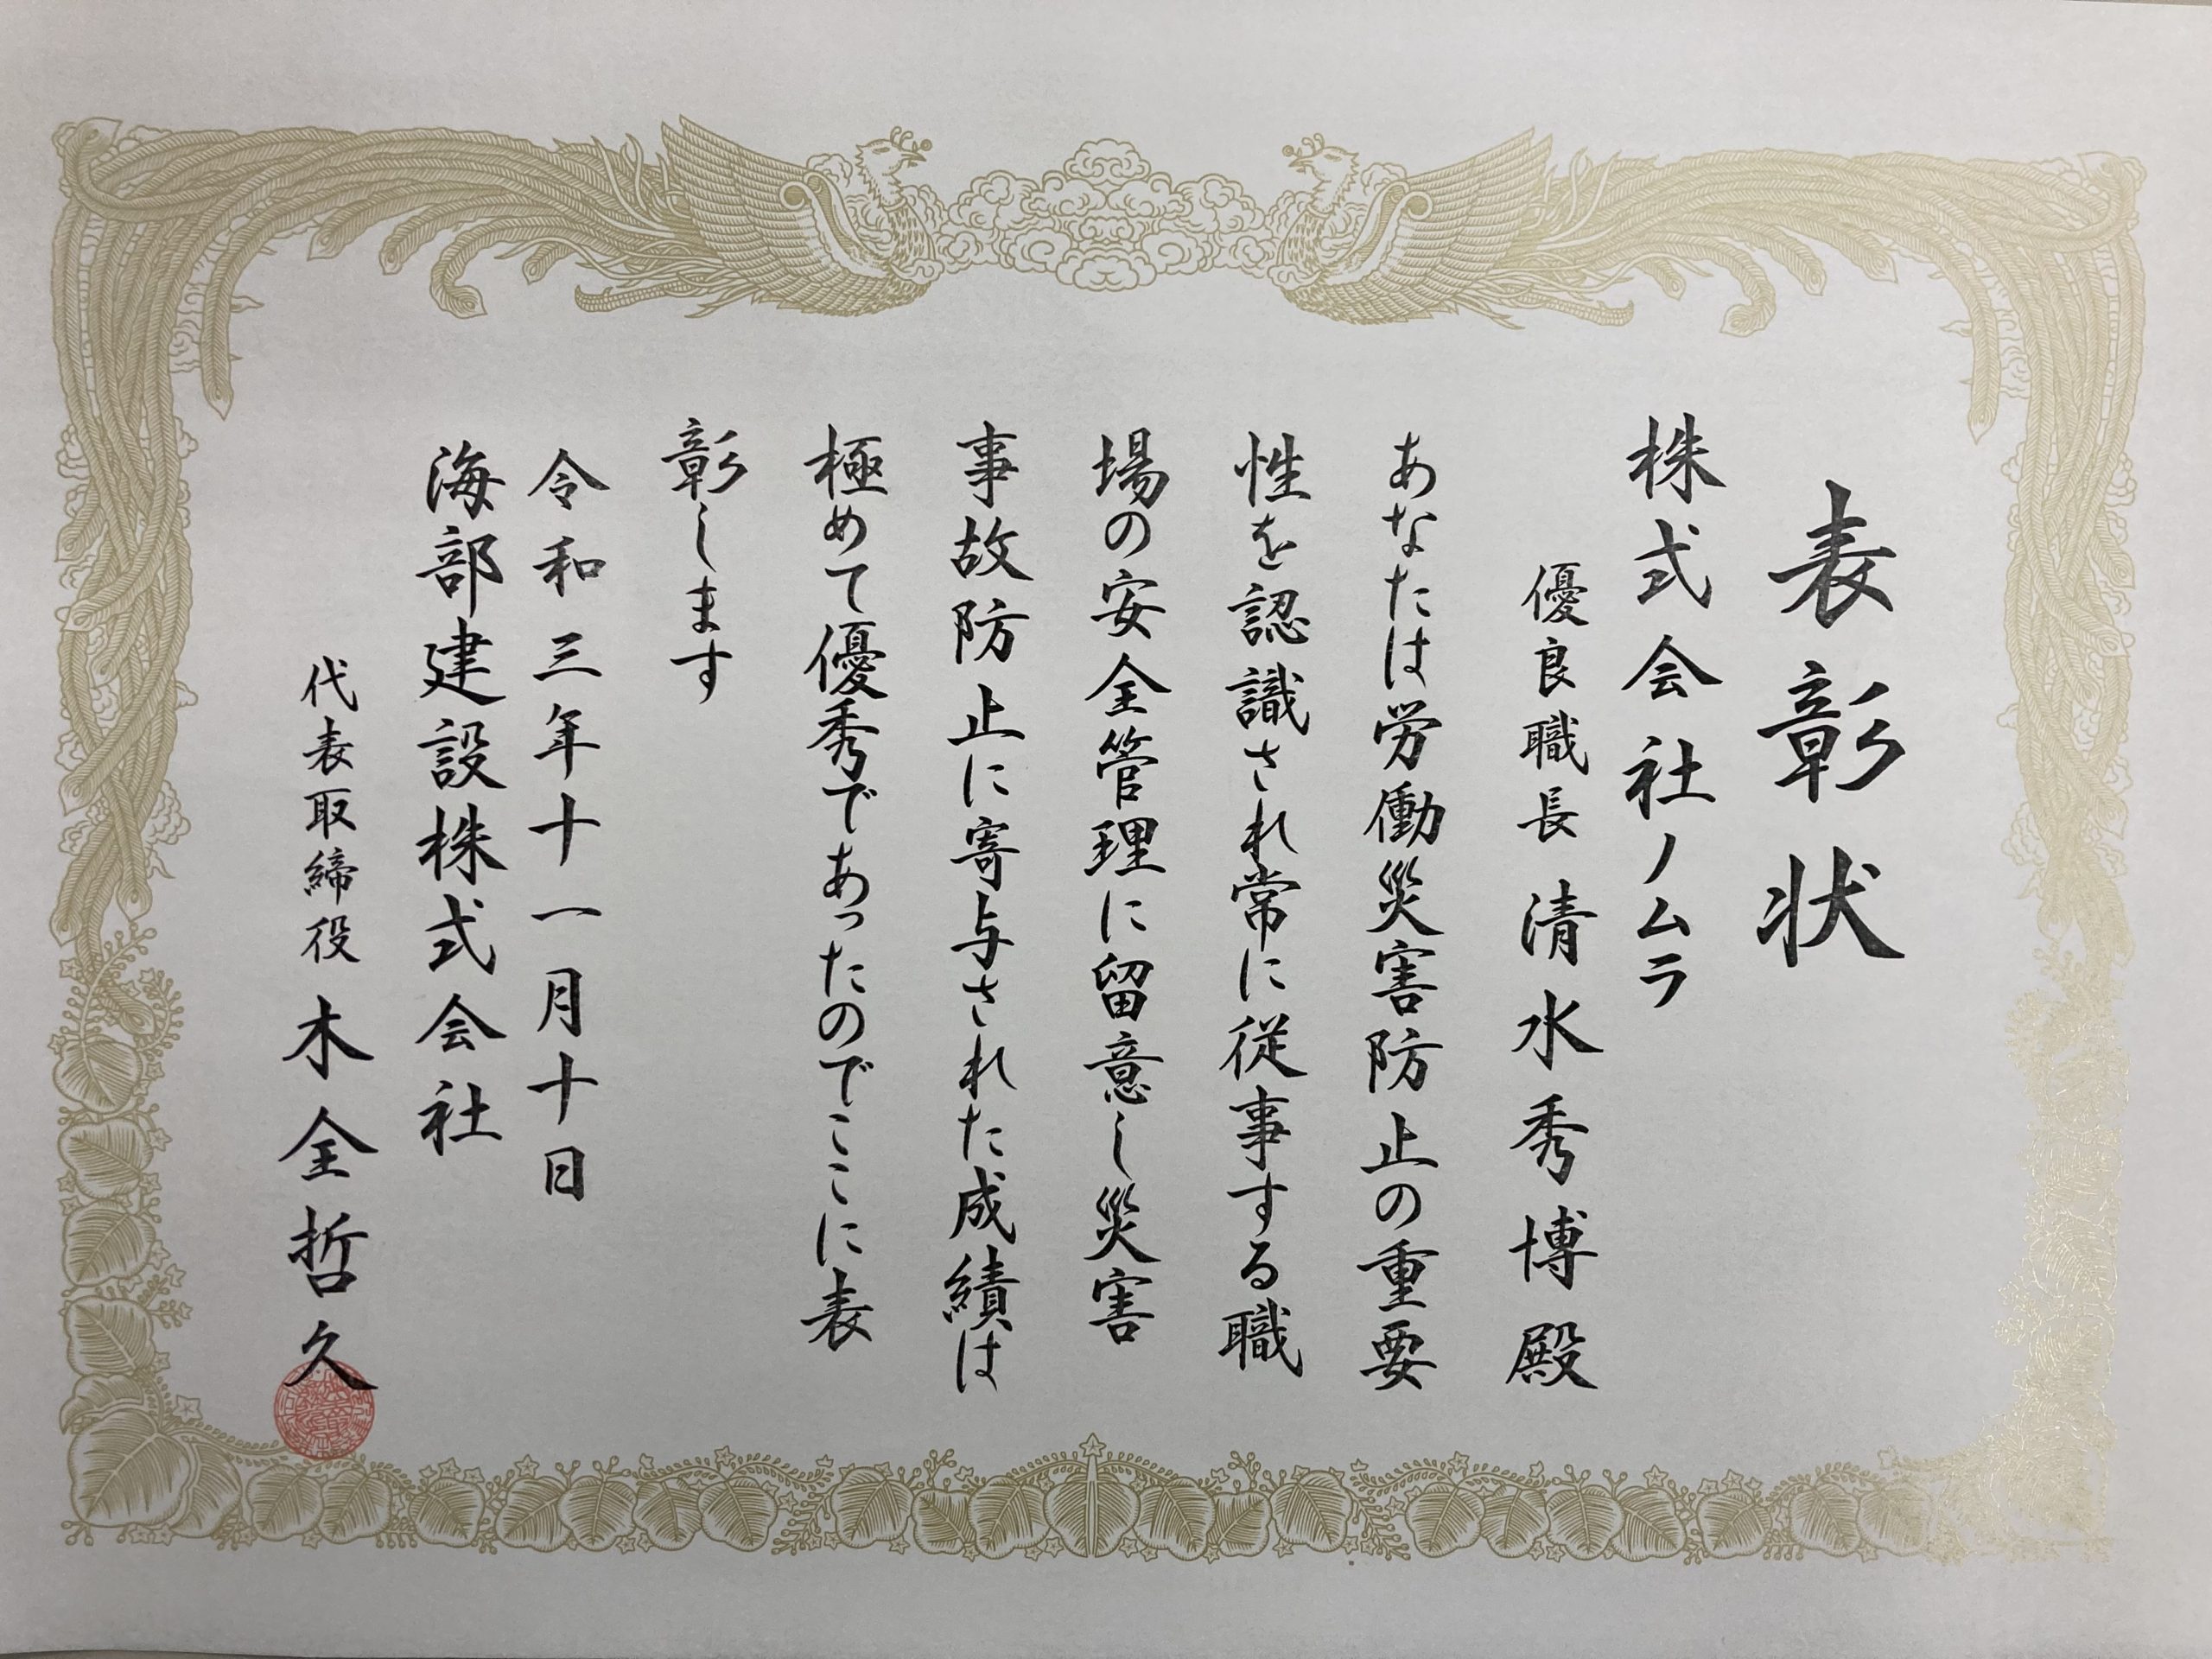 表彰状
株式会社ノムラ
優良職長 清水秀博殿
あなたは労働災害防止の重要
性を認識され常に従事する職
場の安全管理に留意し災害
事故防止に寄与された成績は
極めて優秀であったのでここに表
彰します
令和三年十一月十日
海部建設株式会社
代表取締役 木全哲久